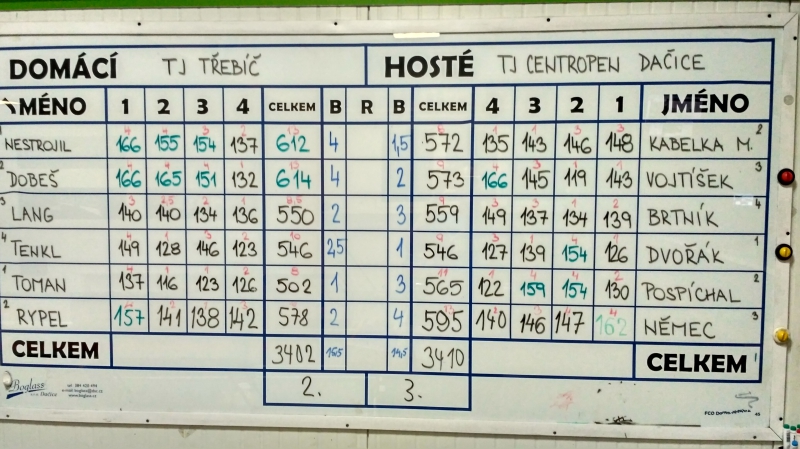 DOMÁCÍ TJ TŘEBÍČ HOSTÉ TJ CENTROPEN DAČICE
JMÉNO 1 2 3 4 CELKEM B R B CELKEM 4 3 2 1 JMÉNO
1 NESTROJIL 166 155 154 137 612 4 1,5 572 135 143 146 148 KABELKA M. 2
2 DOBEŠ 166 165 151 132 614 4 2 573 166 145 119 143 VOJTÍŠEK 3
3 LANG 140 140 134 136 550 2 3 559 149 137 134 139 BRTNÍK 4
4 TENKL 149 128 146 123 546 2,5 1 546 127 139 154 126 DVOŘÁK 1
1 TOMAN 137 116 123 126 502 1 3 565 122 159 154 130 POSPÍCHAL 2
2 RYPEL 157 141 138 142 578 2 4 595 140 146 147 162 NĚMEC 3
CELKEM 3402 15,5 14,5 3410 CELKEM
2. 3.
Boglass
www.boglass.cz